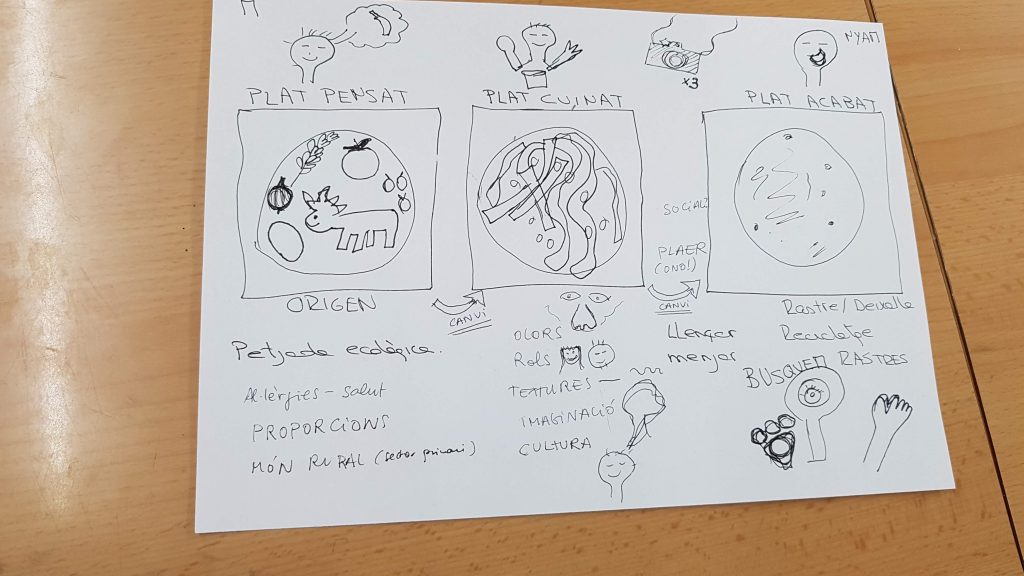 NYAM
x3
PLAT PENSAT
PLAT CUINAT
PLAT ACABAT
SOCIALI
PLAER
(O NO!)
ORIGEN
CANVI
CANVI
Petjada ecològica.
Al·lèrgies - salut
PROPORCIONS
MÓN RURAL (sector primari)
OLORS
Rols
TEXTURES
IMAGINACIÓ
CULTURA
Llençar
menjar
Rastre/Deixalla
Reciclatge
BUSQUEM RASTRES